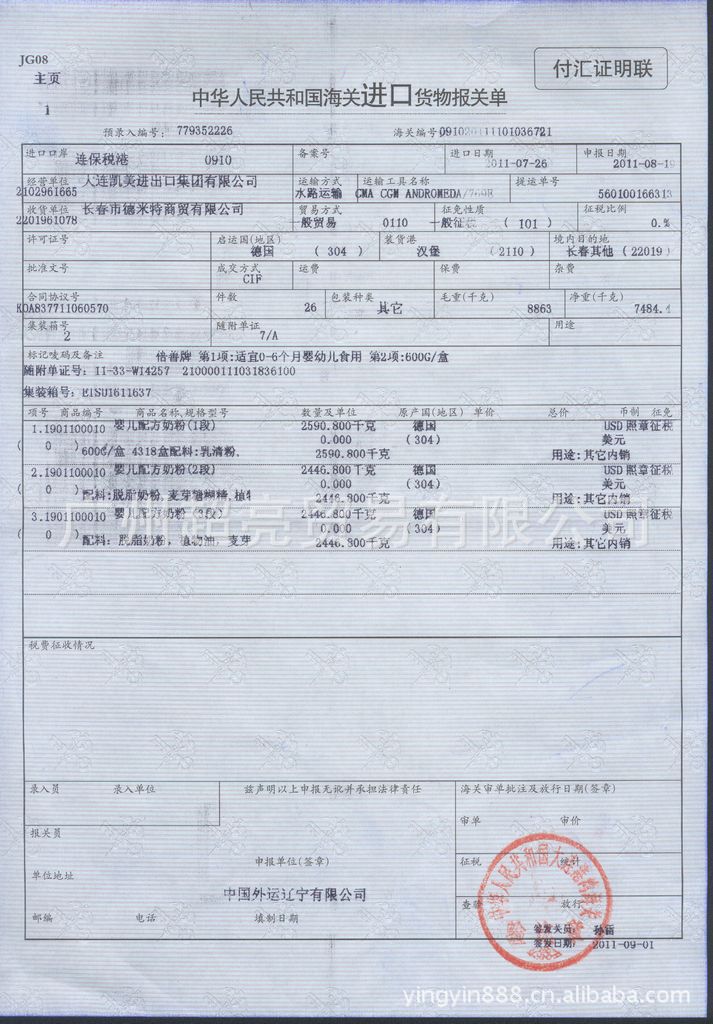 JG08
主页
1
付汇证明联
中华人民共和国海关进口货物报关单
预录入编号: 779352226 海关编号
进口口岸 连保税港 0910 备案号 进口日期 2011-07-26 申报日期 2011-08-19
经营单位 大连凯美进出口集团有限公司 运输方式 运输工具名称 提运单号
2102961665 水路运输 CMA CGM ANDROMEDA/ 560100166313
收货单位 长春市德米特商贸有限公司 贸易方式 征免性质 征税比例
2201961078 一般贸易 0110 一般征税 ( 101 ) 0.%
许可证号 启运国(地区) 装货港 境内目的地
德国 ( 304 ) 汉堡 ( 2110 ) 长春其他 ( 22019 )
批准文号 成交方式 运费 保费 杂费
CIF
合同协议号 件数 包装种类 毛重(千克) 净重(千克)
KOA837711060570 26 其它 8863 7484.4
集装箱号 随附单证 用途
2 7/A
标记唛码及备注 倍善牌 第1项:适宜0-6个月婴幼儿食用 第2项:600G/盒
随附单证号: 11-33-W14257 210000111031836100
集装箱号: EISU1611637
项号 商品编号 商品名称、规格型号 数量及单位 原产国(地区) 单价 总价 币制 征免
1.1901100010 婴儿配方奶粉(1段) 2590.800千克 德国 USD 照章征税
( 0 ) 0.000 (304) 美元
600G/盒 4318盒配料:乳清粉, 2590.800千克 用途:其它内销
2.1901100010 婴儿配方奶粉(2段) 2446.800千克 德国 USD 照章征税
( 0 ) 0.000 (304) 美元
配料:脱脂奶粉,麦芽糖糊精,植物 2446.800千克 用途:其它内销
3.1901100010 婴儿配方奶粉(3段) 2446.800千克 德国 USD 照章征税
( 0 ) 0.000 (304) 美元
配料: 脱脂奶粉, 植物油, 麦芽 2446.800千克 用途:其它内销
税费征收情况
录入员 录入单位 兹声明以上申报无讹并承担法律责任 海关审单批注及放行日期(签章)
审单 审价
报关员
申报单位(签章) 征税 统计
单位地址
中国外运辽宁有限公司 查验 放行
邮编 电话 填制日期
签发关员: 孙雷
签发日期: 2011-09-01
yingyin888.cn.alibaba.com